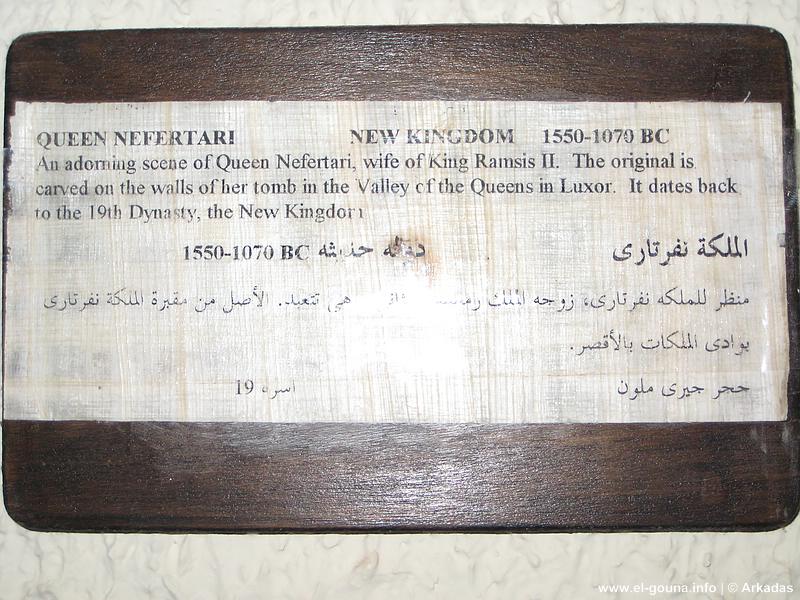 QUEEN NEFERTARI NEW KINGDOM 1550-1070 BC
An adorning scene of Queen Nefertari, wife of King Ramsis II. The original is
carved on the walls of her tomb in the Valley of the Queens in Luxor. It dates back
to the 19th Dynasty, the New Kingdom
الملكة نفرتارى دوله حديثه 1550-1070 BC
منظر للملكه نفرتارى، زوجه الملك هى تتعبد. الأصل من مقبرة الملكة نفرتارى
بوادى الملكات بالأقصر.
حجر جيرى ملون اسره 19
www.el-gouna.info | © Arkadas